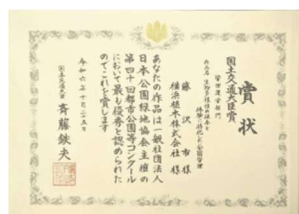 賞状
国土交通大臣賞
管理運営部門
藤沢市様
横浜植木株式会社様
あなたの作品は一般社団法人
日本公園緑地協会主催の
第四十回都市公園等コンクール
において最も優秀と認められた
のでこれを賞します
令和六年十月二十五日
国土交通大臣 斉藤鉄夫